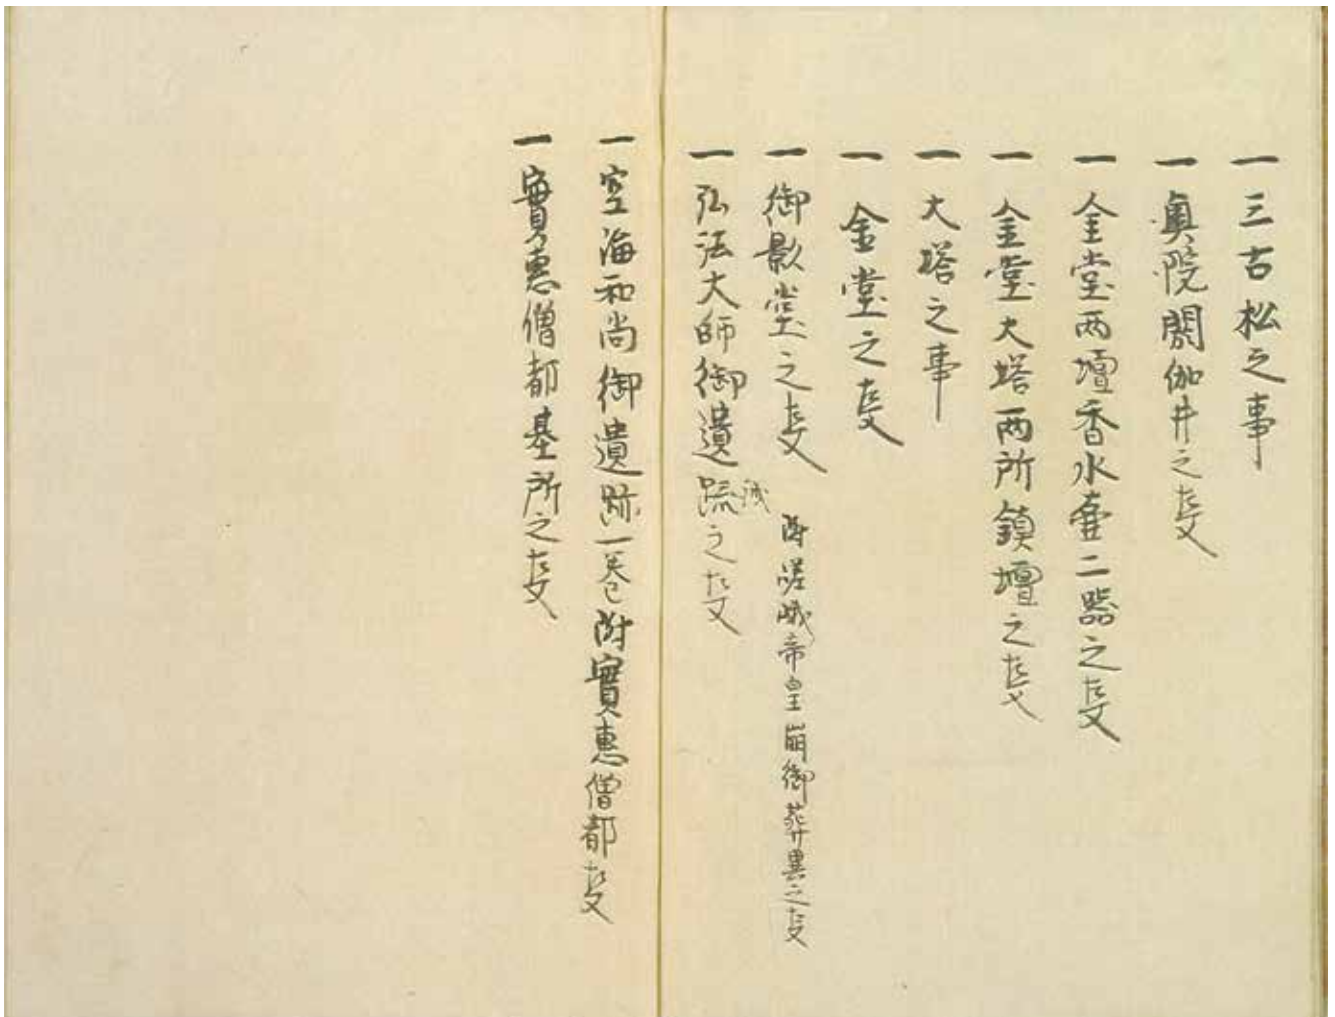 一三古松之事
一奥院閼伽井之㕝
一金堂两壇香水壺二器之㕝
一金堂大塔两所鎮壇之㕝
一大塔之事
一金堂之㕝
一御影堂之㕝 附嵯峨帝皇崩御葬異之㕝
一弘法大師御遺跡誡之㕝
一空海和尚御遺跡一卷附實惠僧都㕝
一實惠僧都墓所之㕝